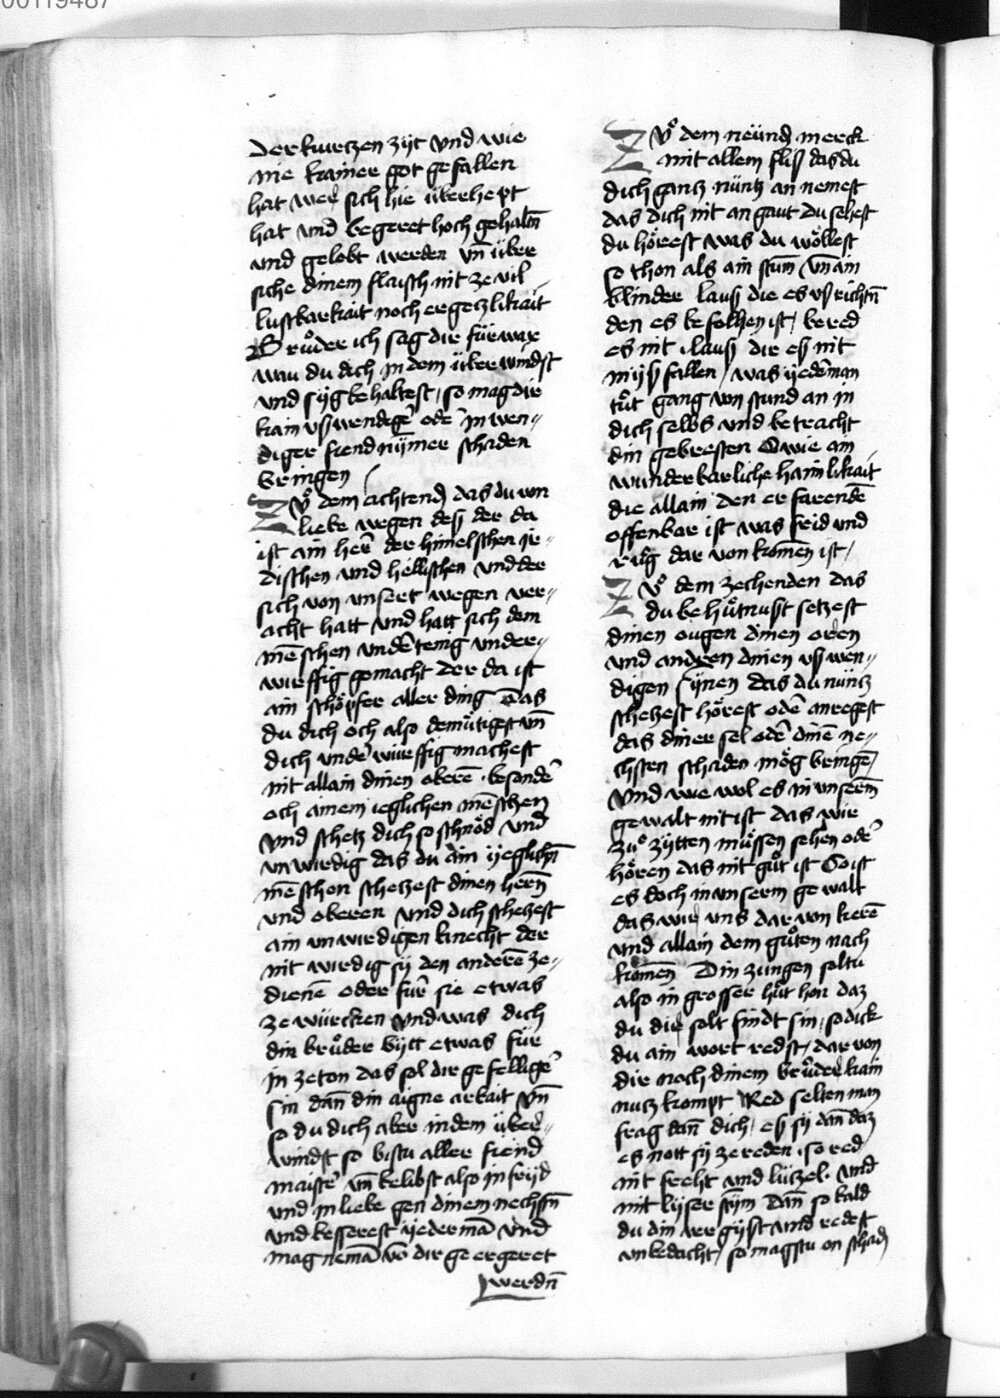 00119487
der kurczen zÿt vnd wie
nie kainer got gefallen
hat wer sich hie überhept
hat vnd begeret hoch gehaltñ
vnd gelobt werden vñ über
siche dinem flaisch nit ze vil
lustbarkait noch ergeczlikait
Brůder ich sag dir fürwar
wan du dich in dem über windst
vnd syg behaltest / so mag dir
kain vsswendiger̄ odē in wen„
diger fiend nÿmer schaden
bringen
Zů dem achtend das du von
liebe wegen dess der da
ist ain her̄ der himelschen ir„
dischen vnd hellischen vnd der
sich von vnsert wegen ver„
acht hatt vnd hatt sich dem
mēschen vndētenig vnder„
wirffig gemacht der da ist
ain schöpfer aller ding Das
du dich och also demütigest vñ
dich vndē würffig machest
nit allain dinen oberē · besondē
och ainem ieglichen mēschen
vnd schetz dich so schnöd vnd
vnwirdig das du ain yeglichñ
mēschen schetzest dinen herñ
vnd oberen vnd dich schetzest
ain vnwirdigen knecht der
nit wirdig sÿ den anderē ze„
dienē oder für sie etwas
ze würcken vnd was dich
din brůder bytt etwas für
in ze ton das sol dir gefelliger̄
sin dañ din aigne arbait vñ
so du dich aber in dem über„
windst so bistu aller fiend
maistē vñ belibst also in fryd
vnd in liebe gen dinem nechstñ
vnd besserest yedermā vnd
mag nemā vō dir ge ergeret
werdñ
Zů dem neünd merck
mit allem fliss das du
dich gantz nüntz an nemest
das dich nit an gaut du sehest
du hörest was du wöllest
so thon als ain stum vñ ain
blinder lauss die es vss richtñ
den es befolhen ist / bered
es nit · lauss dir ess nit
myssfallen / was yedeman
tůt gang von stund an in
dich selbs vnd betracht
din gebresten O wie ain
wunderbarliche haimlikait
die allain den erfarendē
offenbar ist was frid vnd
rüg dar von komen ist /
Zů dem zechenden das
du behůtnusst setzest
dinen ougen dinen oren
vnd andren dinen vsswen„
digen sÿnen das du nüntz
schetzest hörest odē anregest
das diner sel odē dinē ne„
chsten schaden mög bringē
Vnd wie wol es in vnserm̄
gewalt nit ist das wir
zů zÿtten müssen sehen odē
hören das nit gůt ist So ist
es doch in vnserm gewalt
das wir vns dar von kerē
vnd allain dem gůten nach
komen Din zungen soltu
also in grosser hůt hon daz
du dir solt findt sin / so dick
du ain wort redst / dar von
dir noch dinem brůder kain
nutz kompt Red selten man
frag dañ dich / ess sÿ dañ daz
es nott sÿ ze reden / so red
nit frecht vnd lützel · vnd
mit lyser stym Dañ so bald
du din vergisst vnd redest
vnbedacht / so magstu on schad